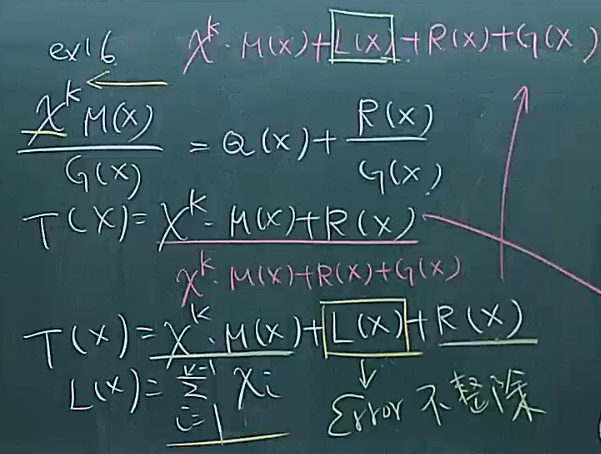 ex16 X^k·M(X)+L(X)+R(X)+G(X)
X^k M(X) / G(X) = Q(X)+ R(X) / G(X)
T(X)=X^k·M(X)+R(X)
X^k·M(X)+R(X)+G(X)
T(X)=X^k·M(X)+L(X)+R(X)
L(X)=∑_{i=1}^{k-1} Xi
Error 不整除